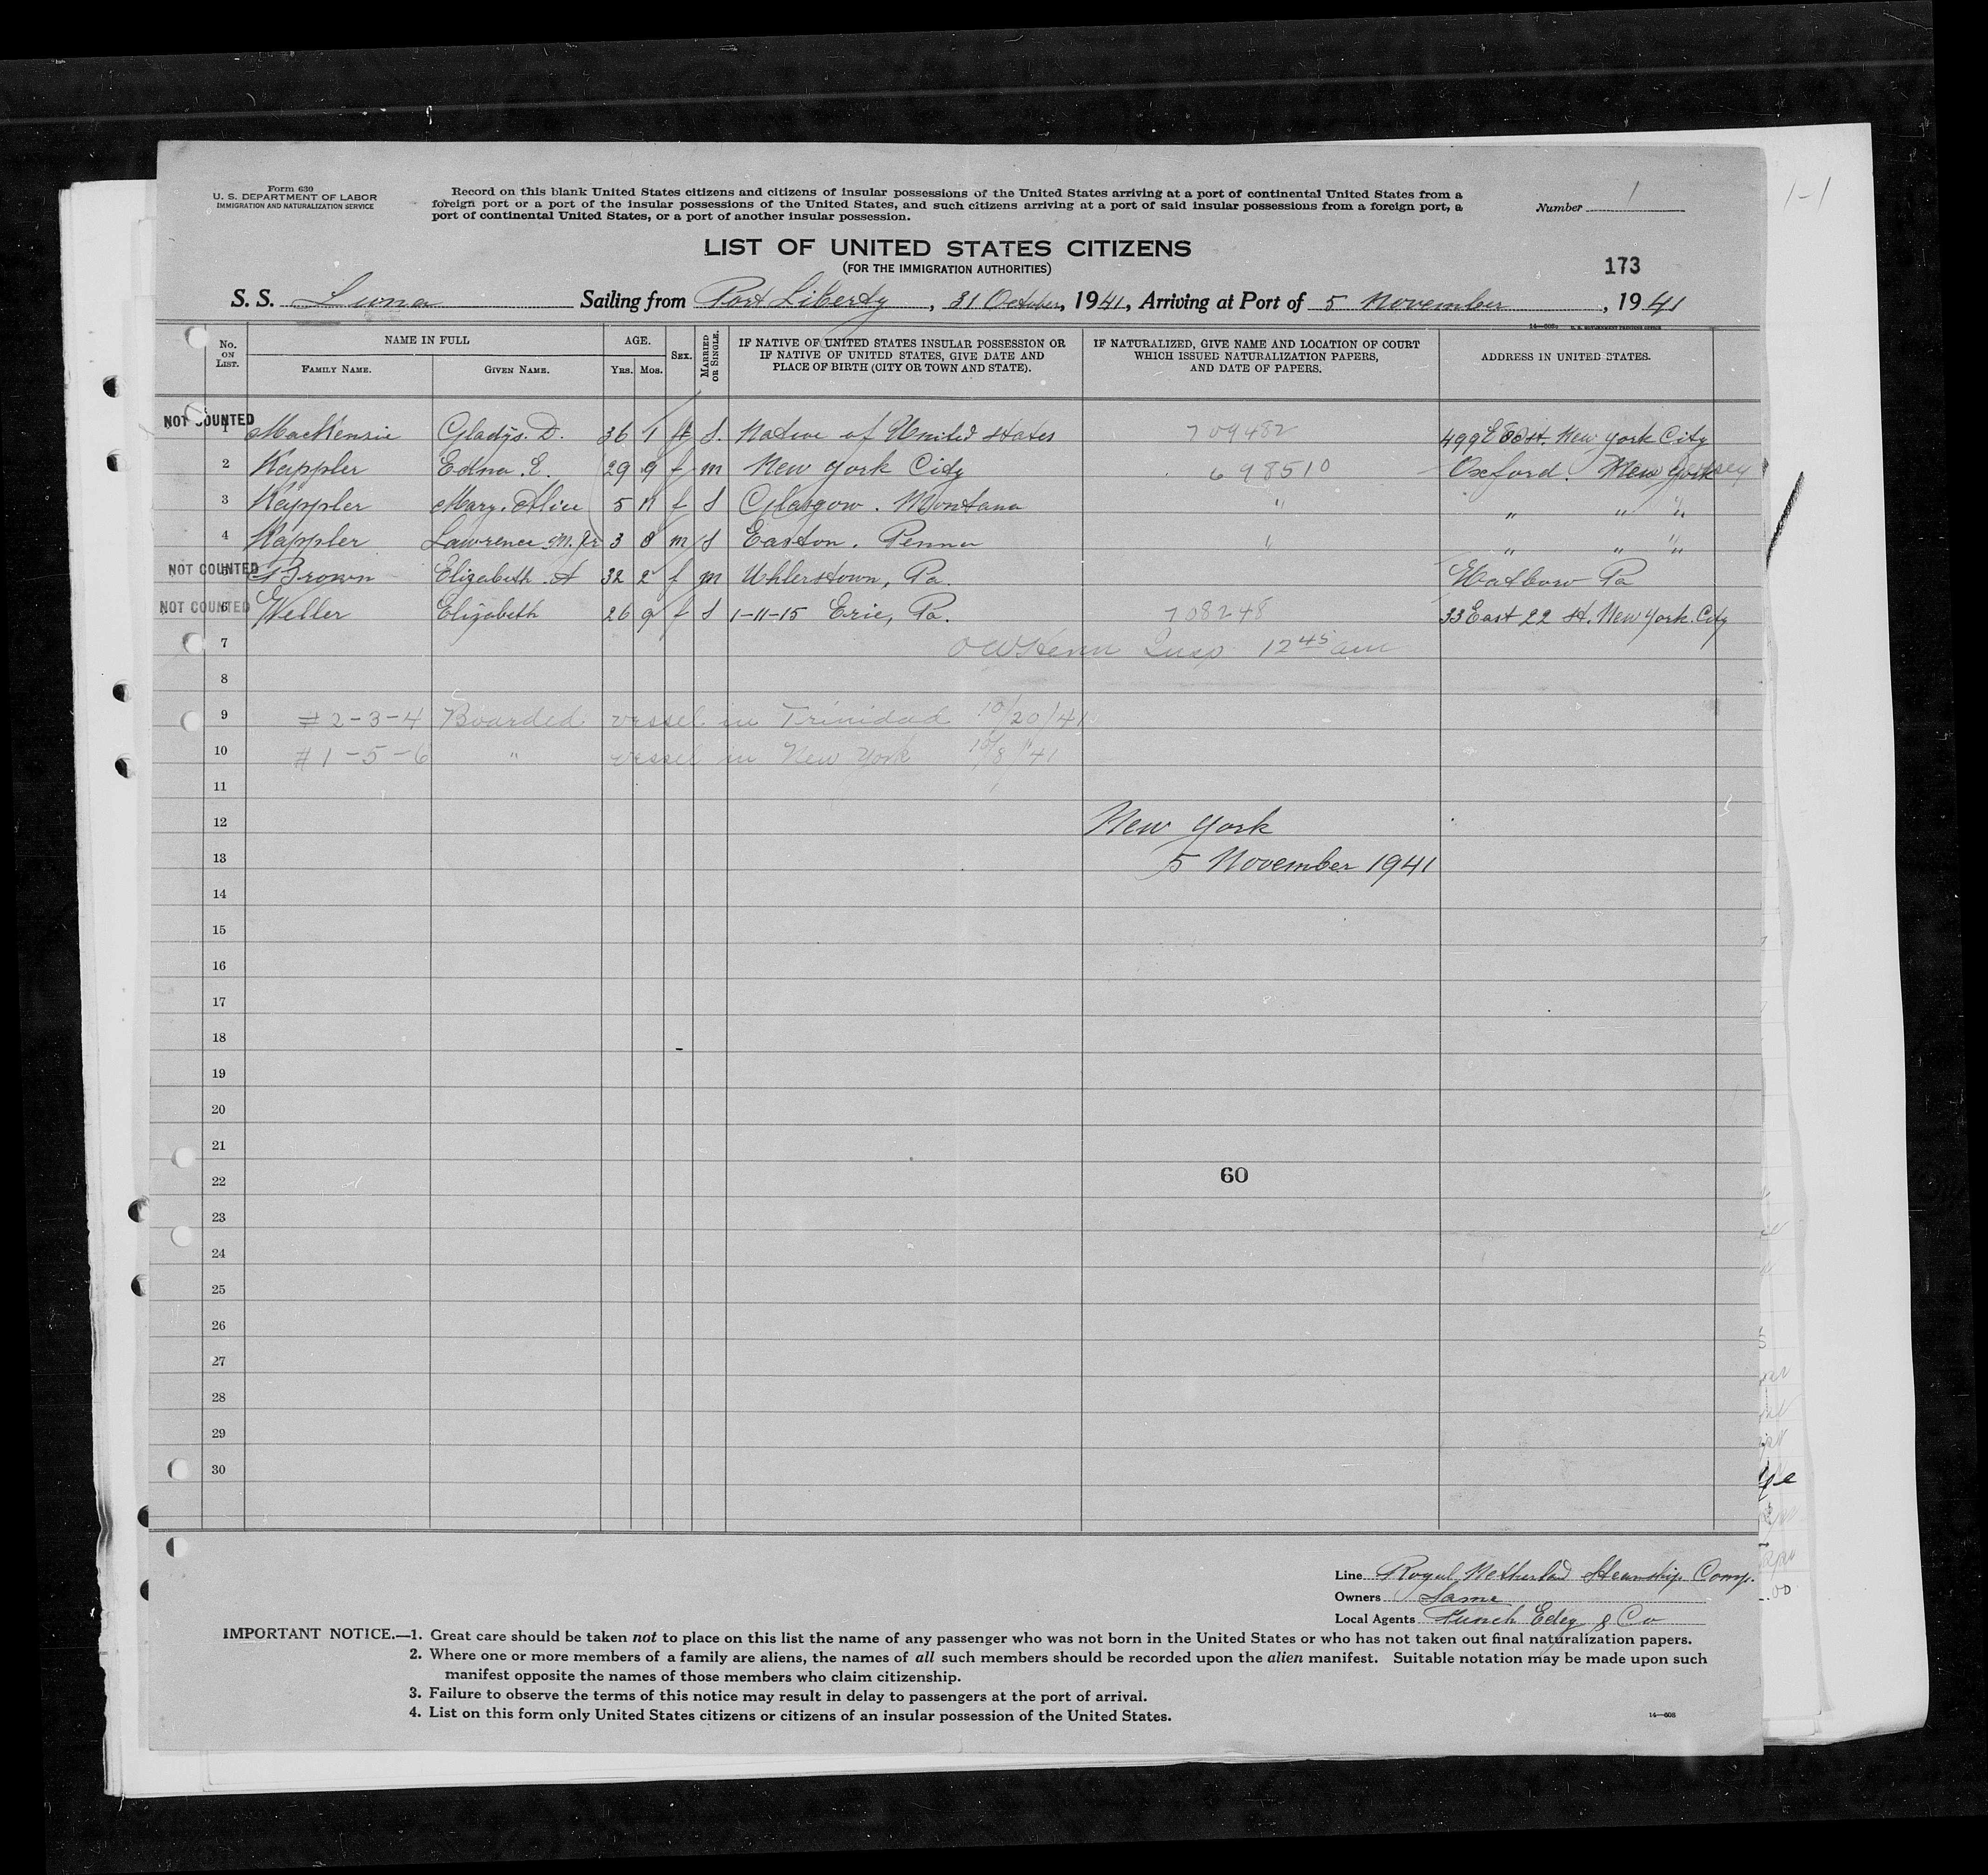 Form 630
U. S. DEPARTMENT OF LABOR
IMMIGRATION AND NATURALIZATION SERVICE
Record on this blank United States citizens and citizens of insular possessions of the United States arriving at a port of continental United States from a
foreign port or a port of the insular possessions of the United States, and such citizens arriving at a port of said insular possessions from a foreign port, a
port of continental United States, or a port of another insular possession.
Number 1
1-1
LIST OF UNITED STATES CITIZENS
(FOR THE IMMIGRATION AUTHORITIES)
173
S. S. Luna Sailing from Port Liberty, 31 October, 1941, Arriving at Port of 5 November, 1941
No. ON LIST. NAME IN FULL FAMILY NAME. GIVEN NAME. AGE. YRS. MOS. SEX. MARRIED OR SINGLE. IF NATIVE OF UNITED STATES INSULAR POSSESSION OR IF NATIVE OF UNITED STATES, GIVE DATE AND PLACE OF BIRTH (CITY OR TOWN AND STATE). IF NATURALIZED, GIVE NAME AND LOCATION OF COURT WHICH ISSUED NATURALIZATION PAPERS, AND DATE OF PAPERS. ADDRESS IN UNITED STATES.
NOT COUNTED 1 MacKenzie Gladys. D. 36 1 f S. Native of United States 709482 499 E St. New York City
2 Kappler Edna E. 29 9 f m New York City 698510 Oxford. New Jersey
3 Kappler Mary. Alice 5 11 f S Glasgow. Montana " " " "
4 Kappler Lawrence M. Jr 3 8 m S Easton. Penna " " " "
NOT COUNTED 5 Brown Elizabeth A 32 2 f m Uhlerstown, Pa. Hatboro Pa
NOT COUNTED 6 Weller Elizabeth 26 9 f S 1-11-15 Erie, Pa. 708248 33 East 22 St. New York. City
7 Insp. 12 45 am
8
9 # 2-3-4 Boarded vessel in Trinidad 10/20/41
10 # 1-5-6 " vessel in New York 10/8/41
11
12 New York
13 5 November 1941
14
15
16
17
18
19
20
21
22 60
23
24
25
26
27
28
29
30
Line Royal Netherland Steamship Comp.
Owners Same
Local Agents Funch Edey & Co
IMPORTANT NOTICE.—1. Great care should be taken not to place on this list the name of any passenger who was not born in the United States or who has not taken out final naturalization papers.
2. Where one or more members of a family are aliens, the names of all such members should be recorded upon the alien manifest. Suitable notation may be made upon such
manifest opposite the names of those members who claim citizenship.
3. Failure to observe the terms of this notice may result in delay to passengers at the port of arrival.
4. List on this form only United States citizens or citizens of an insular possession of the United States.
14—608